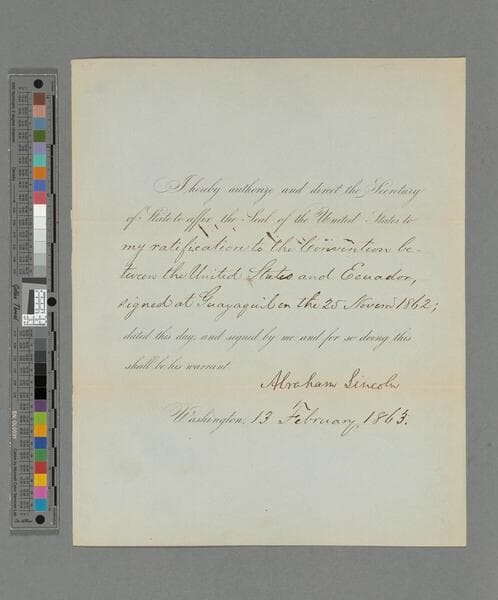 I hereby authorize and direct the Secretary
of State to affix the Seal of the United States to
my ratification to the Convention be-
tween the United States and Ecuador,
signed at Guayaquil on the 25 Novem 1862;
dated this day, and signed by me and for so doing this
shall be his warrant.
Abraham Lincoln
Washington, 13 February, 1863.